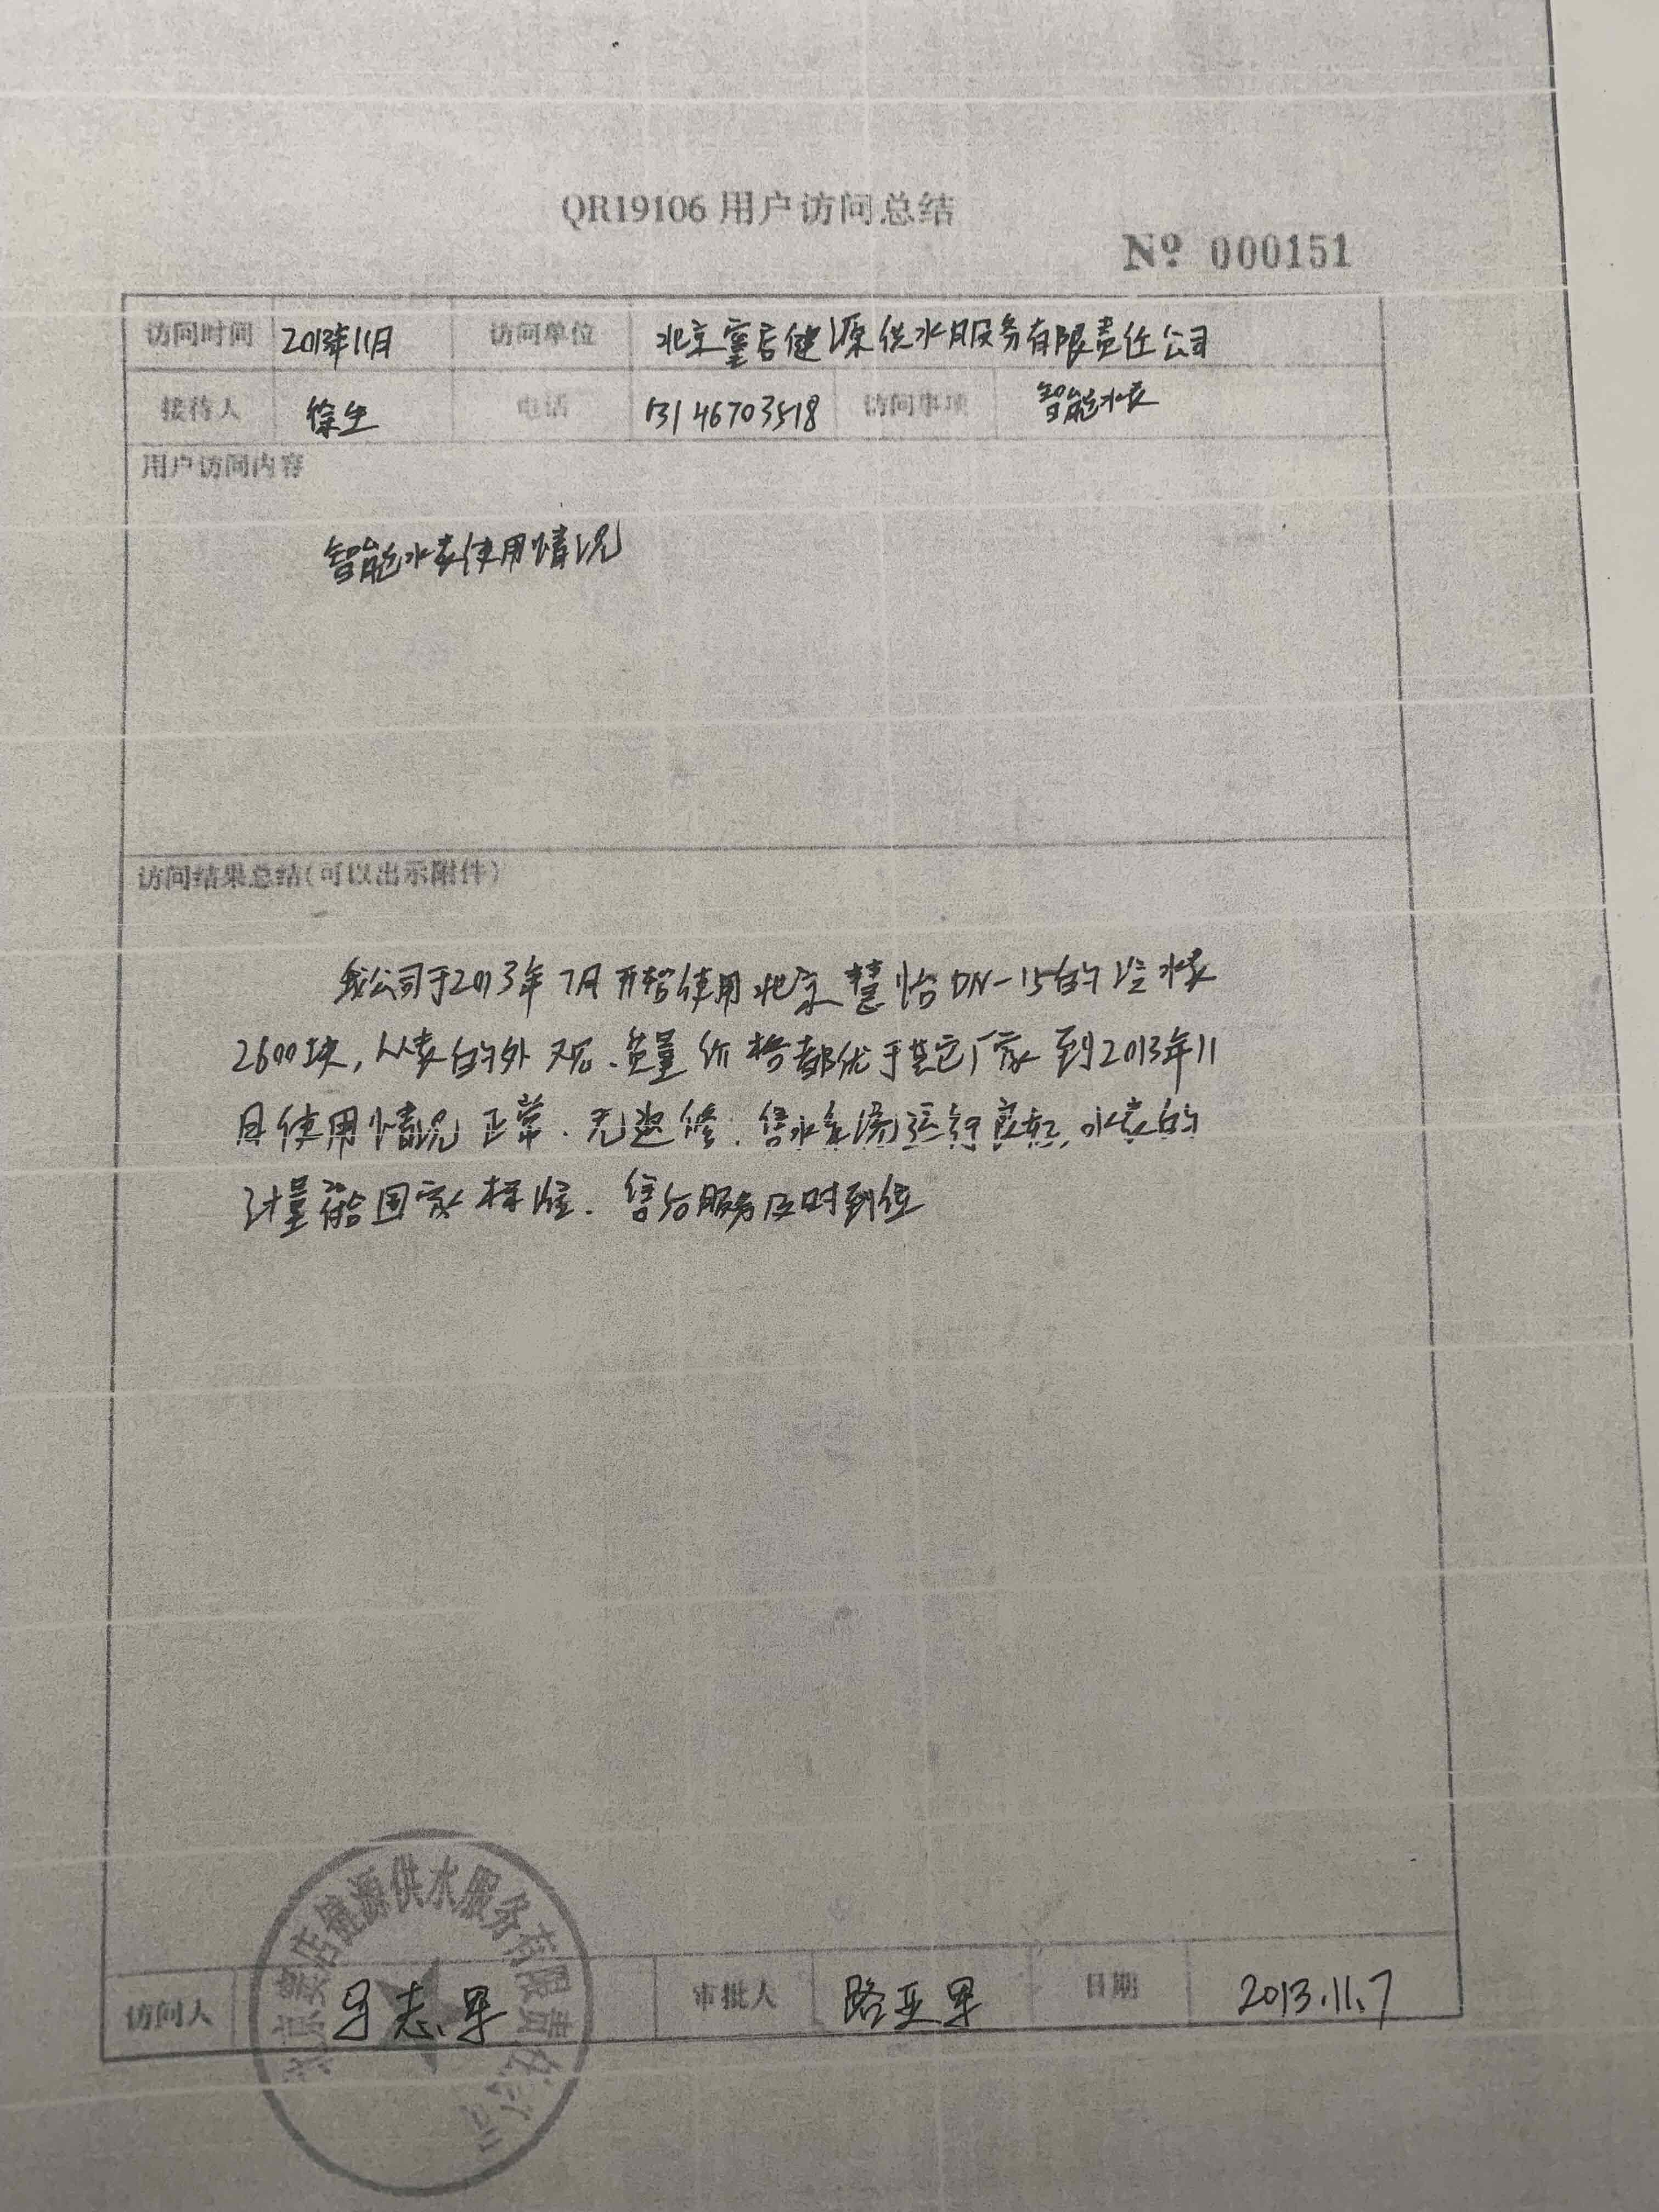 QR19106 用户访问总结
№ 000151
访问时间 2013年11月 访问单位 北京窦店健源供水服务有限责任公司
接待人 徐生 电话 13146703518 访问事项 智能水表
用户访问内容
智能水表使用情况
访问结果总结(可以出示附件)
我公司于2013年7月开始使用北京慧怡DN-15的冷水表
2600块,从表的外观、质量价格都优于其它厂家到2013年11
月使用情况正常.无返修.售水系统运行良好,水表的
计量符合国家标准.售后服务及时到位
访问人 志军 审批人 路亚军 日期 2013.11.7
北京窦店健源供水服务有限责任公司